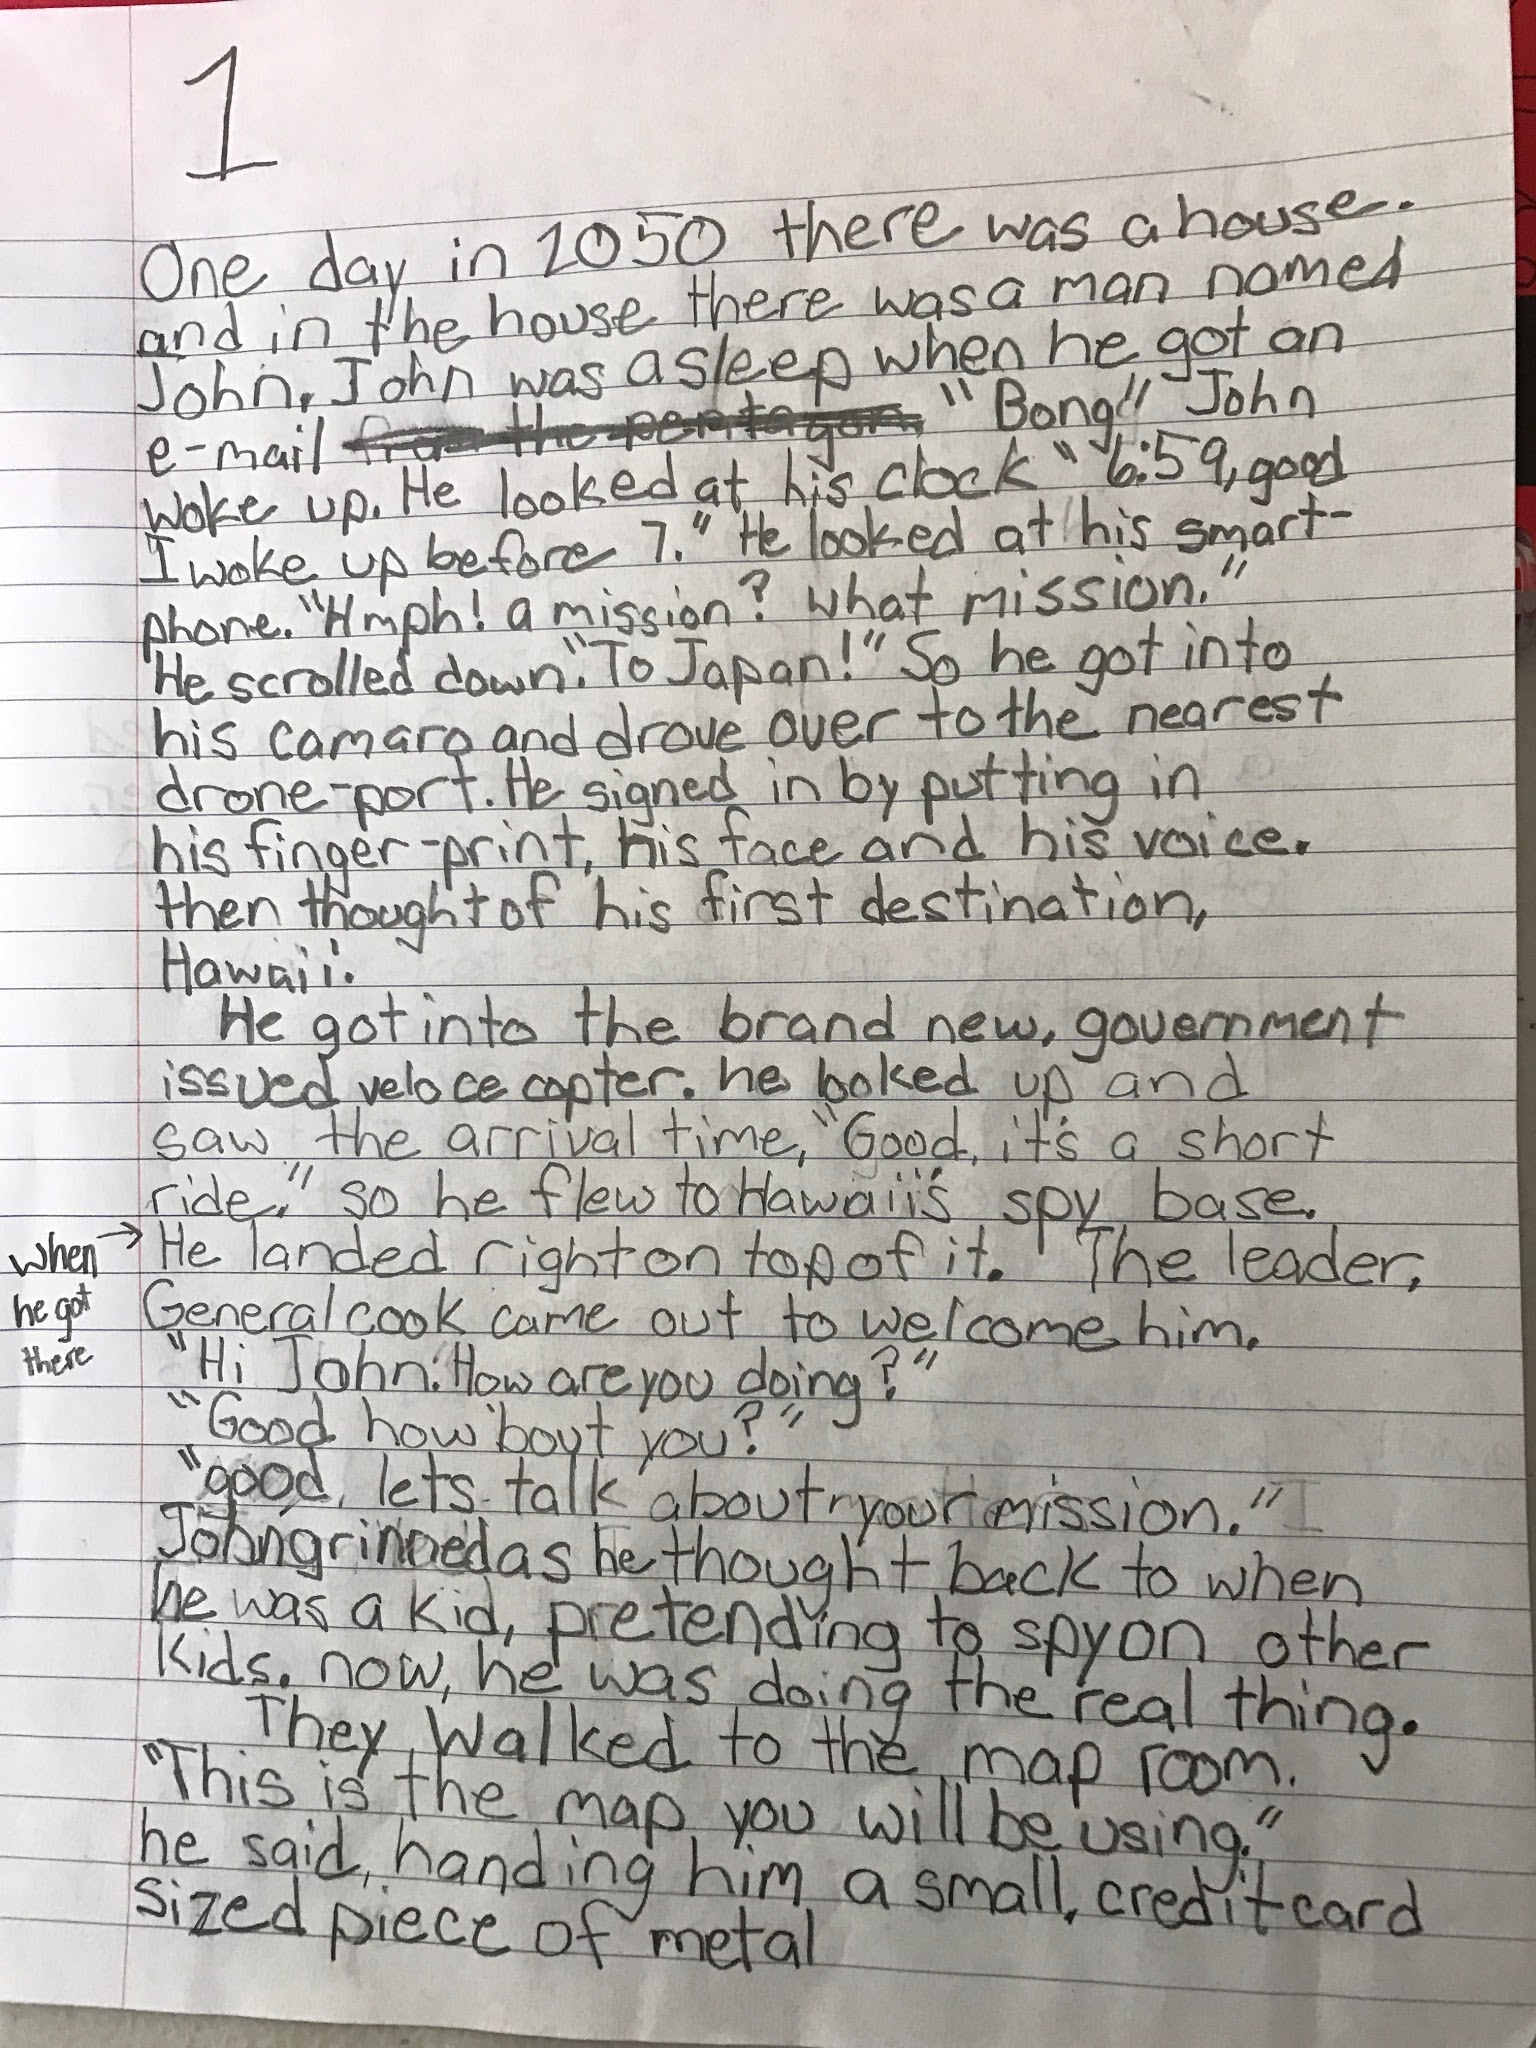 1
One day in 2050 there was a house.
and in the house there was a man named
John. John was asleep when he got an
e-mail from the pentagon. "Bong!" John
woke up. He looked at his clock "6:59, good
I woke up before 7." He looked at his smart-
phone. "Hmph! a mission? what mission."
He scrolled down. "To Japan!" So he got into
his camaro and drove over to the nearest
drone-port. He signed in by putting in
his finger-print, his face and his voice.
then thought of his first destination,
Hawaii.
He got into the brand new, government
issued veloce copter. he looked up and
saw the arrival time, "Good, it's a short
ride." so he flew to Hawaii's spy base.
when he got there
He landed right on top of it. The leader,
General cook came out to welcome him.
"Hi John. How are you doing?"
"Good how 'bout you?"
"good, lets talk about your mission." I
John grinned as he thought back to when
he was a kid, pretending to spy on other
kids. now, he was doing the real thing.
They walked to the map room.
"This is the map you will be using."
he said, handing him a small, credit card
sized piece of metal